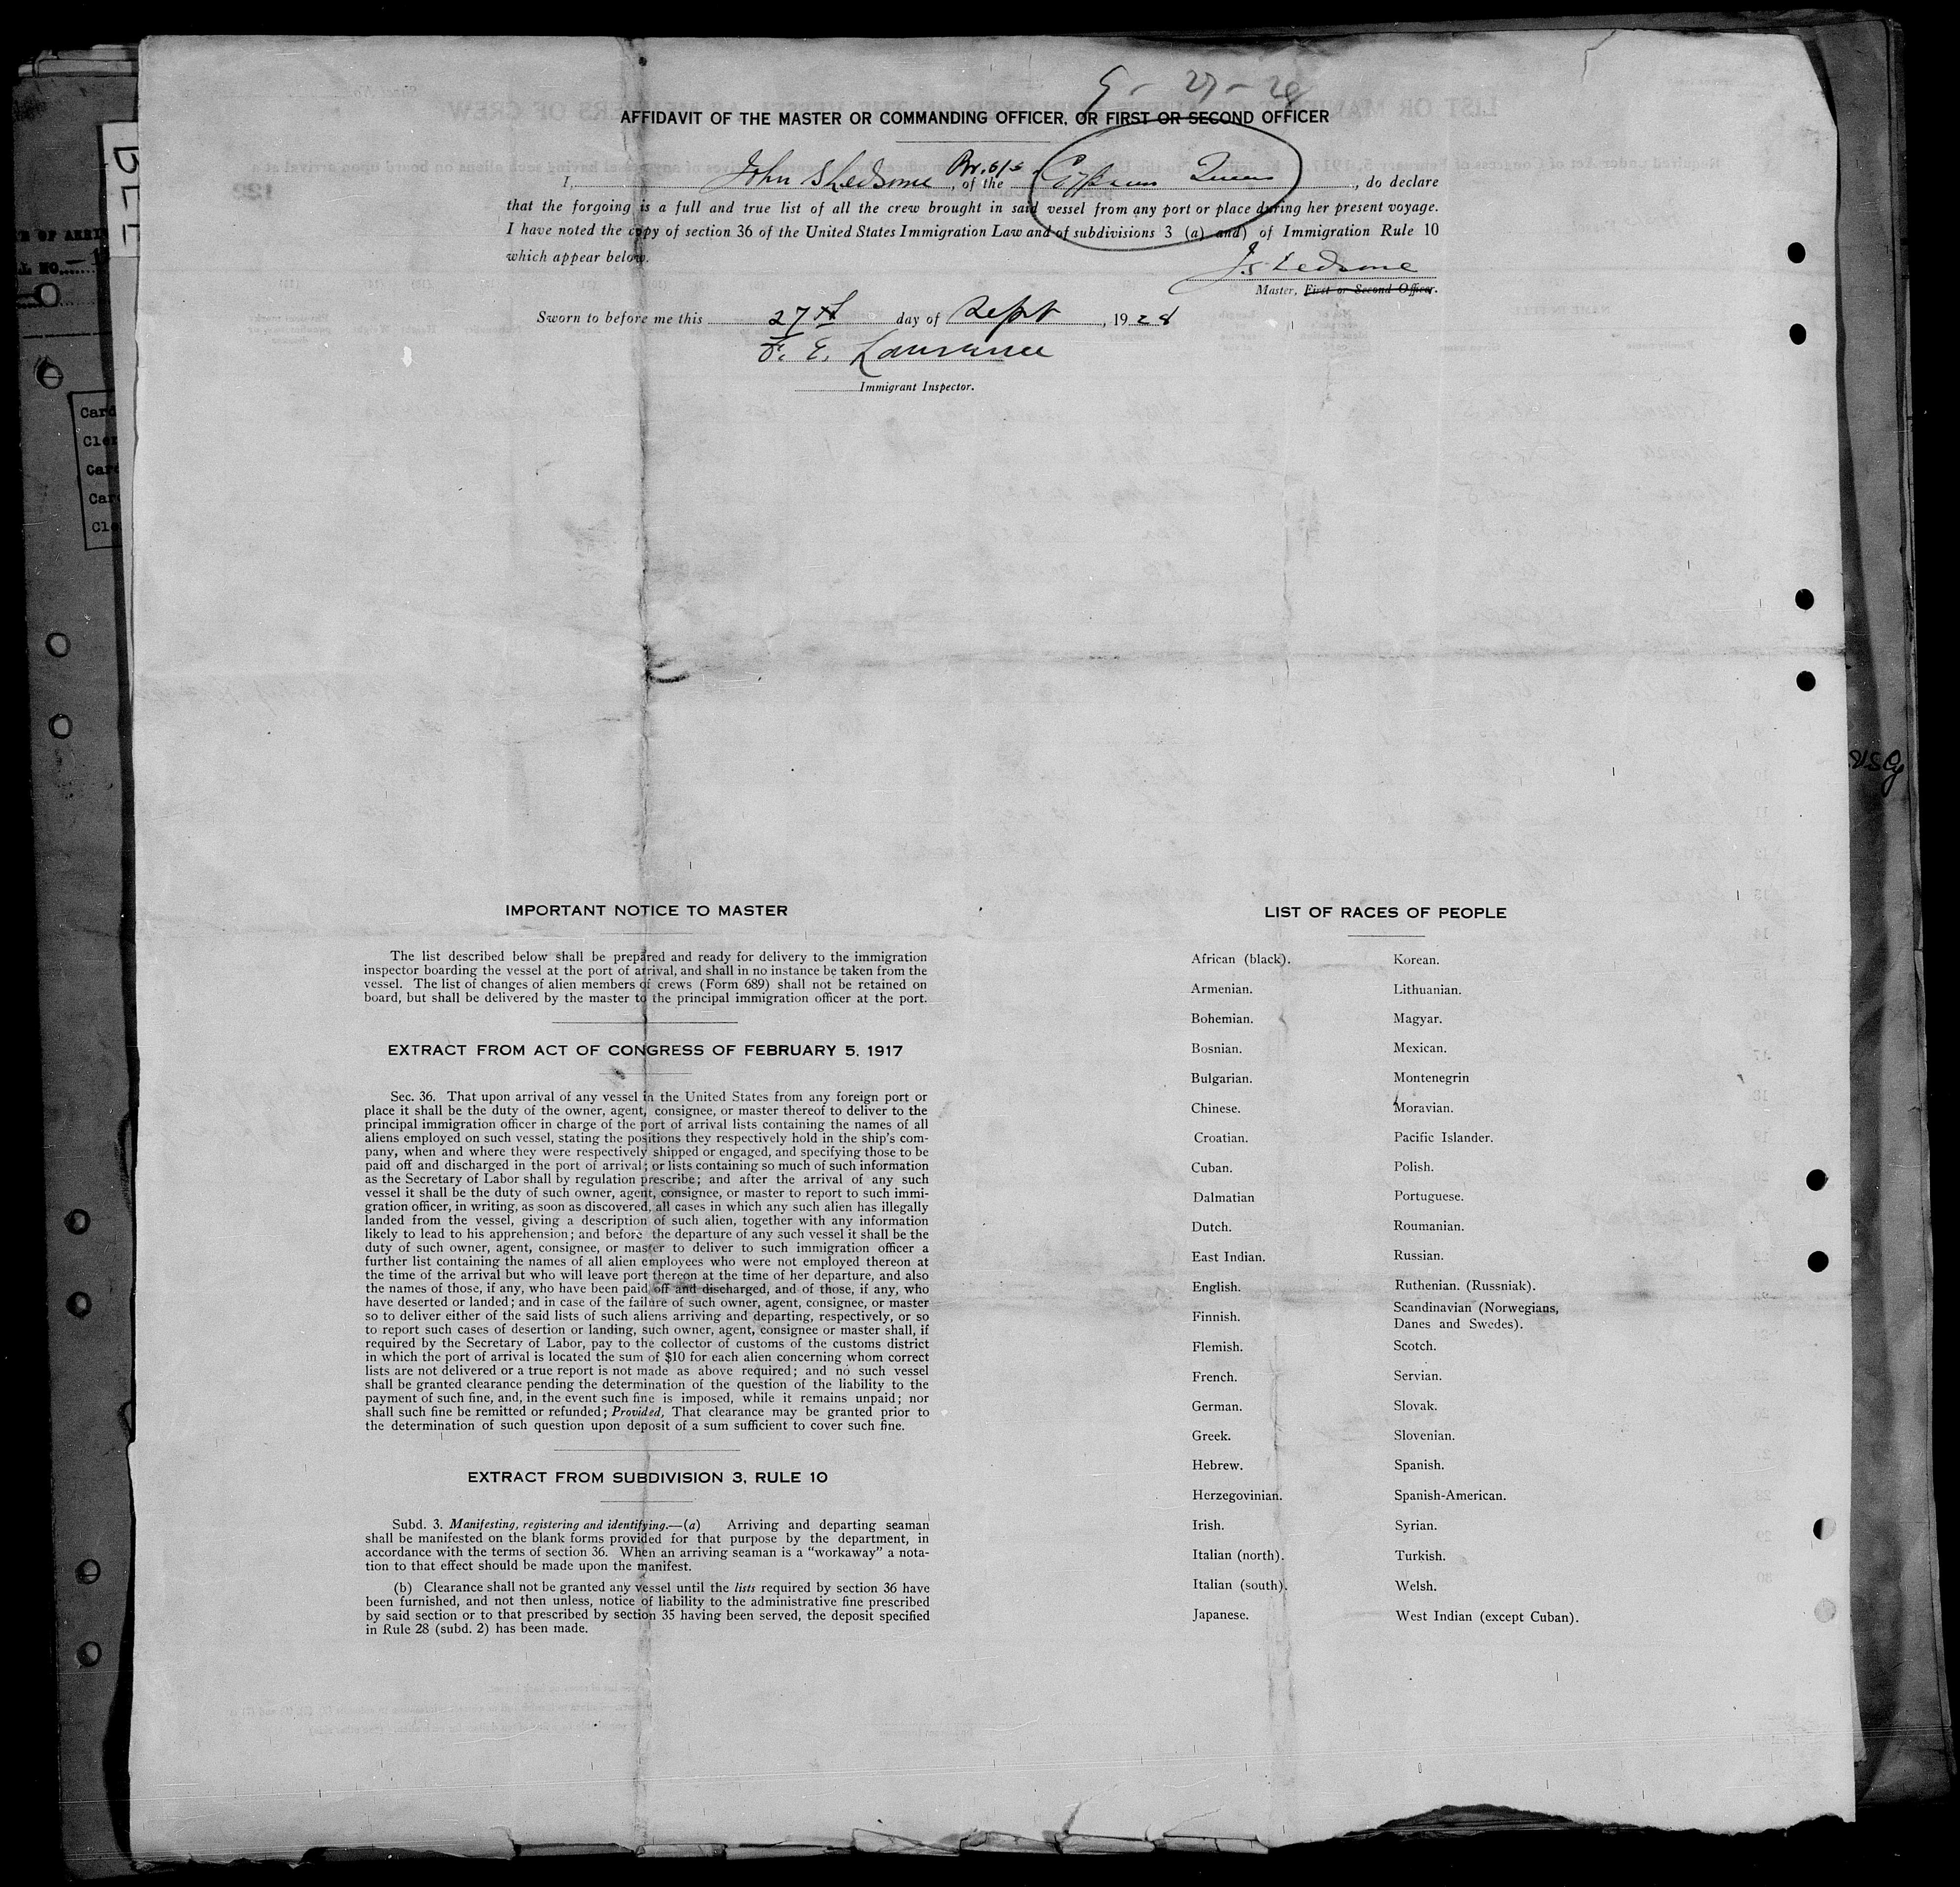 9 - 27 - 28
AFFIDAVIT OF THE MASTER OR COMMANDING OFFICER, OR FIRST OR SECOND OFFICER
I, John S Ledsome, of the Br. s/s Cyprus Queen, do declare
that the forgoing is a full and true list of all the crew brought in said vessel from any port or place during her present voyage.
I have noted the copy of section 36 of the United States Immigration Law and of subdivisions 3 (a) and) of Immigration Rule 10
which appear below.
J S Ledsome
Master, First or Second Officer.
Sworn to before me this 27th day of Sept, 1928
F. E. Lawrence
Immigrant Inspector.
IMPORTANT NOTICE TO MASTER
The list described below shall be prepared and ready for delivery to the immigration
inspector boarding the vessel at the port of arrival, and shall in no instance be taken from the
vessel. The list of changes of alien members of crews (Form 689) shall not be retained on
board, but shall be delivered by the master to the principal immigration officer at the port.
EXTRACT FROM ACT OF CONGRESS OF FEBRUARY 5, 1917
Sec. 36. That upon arrival of any vessel in the United States from any foreign port or
place it shall be the duty of the owner, agent, consignee, or master thereof to deliver to the
principal immigration officer in charge of the port of arrival lists containing the names of all
aliens employed on such vessel, stating the positions they respectively hold in the ship's com-
pany, when and where they were respectively shipped or engaged, and specifying those to be
paid off and discharged in the port of arrival; or lists containing so much of such information
as the Secretary of Labor shall by regulation prescribe; and after the arrival of any such
vessel it shall be the duty of such owner, agent, consignee, or master to report to such immi-
gration officer, in writing, as soon as discovered, all cases in which any such alien has illegally
landed from the vessel, giving a description of such alien, together with any information
likely to lead to his apprehension; and before the departure of any such vessel it shall be the
duty of such owner, agent, consignee, or master to deliver to such immigration officer a
further list containing the names of all alien employees who were not employed thereon at
the time of the arrival but who will leave port thereon at the time of her departure, and also
the names of those, if any, who have been paid off and discharged, and of those, if any, who
have deserted or landed; and in case of the failure of such owner, agent, consignee, or master
so to deliver either of the said lists of such aliens arriving and departing, respectively, or so
to report such cases of desertion or landing, such owner, agent, consignee or master shall, if
required by the Secretary of Labor, pay to the collector of customs of the customs district
in which the port of arrival is located the sum of $10 for each alien concerning whom correct
lists are not delivered or a true report is not made as above required; and no such vessel
shall be granted clearance pending the determination of the question of the liability to the
payment of such fine, and, in the event such fine is imposed, while it remains unpaid; nor
shall such fine be remitted or refunded; Provided, That clearance may be granted prior to
the determination of such question upon deposit of a sum sufficient to cover such fine.
EXTRACT FROM SUBDIVISION 3, RULE 10
Subd. 3. Manifesting, registering and identifying.—(a) Arriving and departing seaman
shall be manifested on the blank forms provided for that purpose by the department, in
accordance with the terms of section 36. When an arriving seaman is a "workaway" a nota-
tion to that effect should be made upon the manifest.
(b) Clearance shall not be granted any vessel until the lists required by section 36 have
been furnished, and not then unless, notice of liability to the administrative fine prescribed
by said section or to that prescribed by section 35 having been served, the deposit specified
in Rule 28 (subd. 2) has been made.
LIST OF RACES OF PEOPLE
African (black).
Armenian.
Bohemian.
Bosnian.
Bulgarian.
Chinese.
Croatian.
Cuban.
Dalmatian
Dutch.
East Indian.
English.
Finnish.
Flemish.
French.
German.
Greek.
Hebrew.
Herzegovinian.
Irish.
Italian (north).
Italian (south).
Japanese.
Korean.
Lithuanian.
Magyar.
Mexican.
Montenegrin
Moravian.
Pacific Islander.
Polish.
Portuguese.
Roumanian.
Russian.
Ruthenian. (Russniak).
Scandinavian (Norwegians,
Danes and Swedes).
Scotch.
Servian.
Slovak.
Slovenian.
Spanish.
Spanish-American.
Syrian.
Turkish.
Welsh.
West Indian (except Cuban).